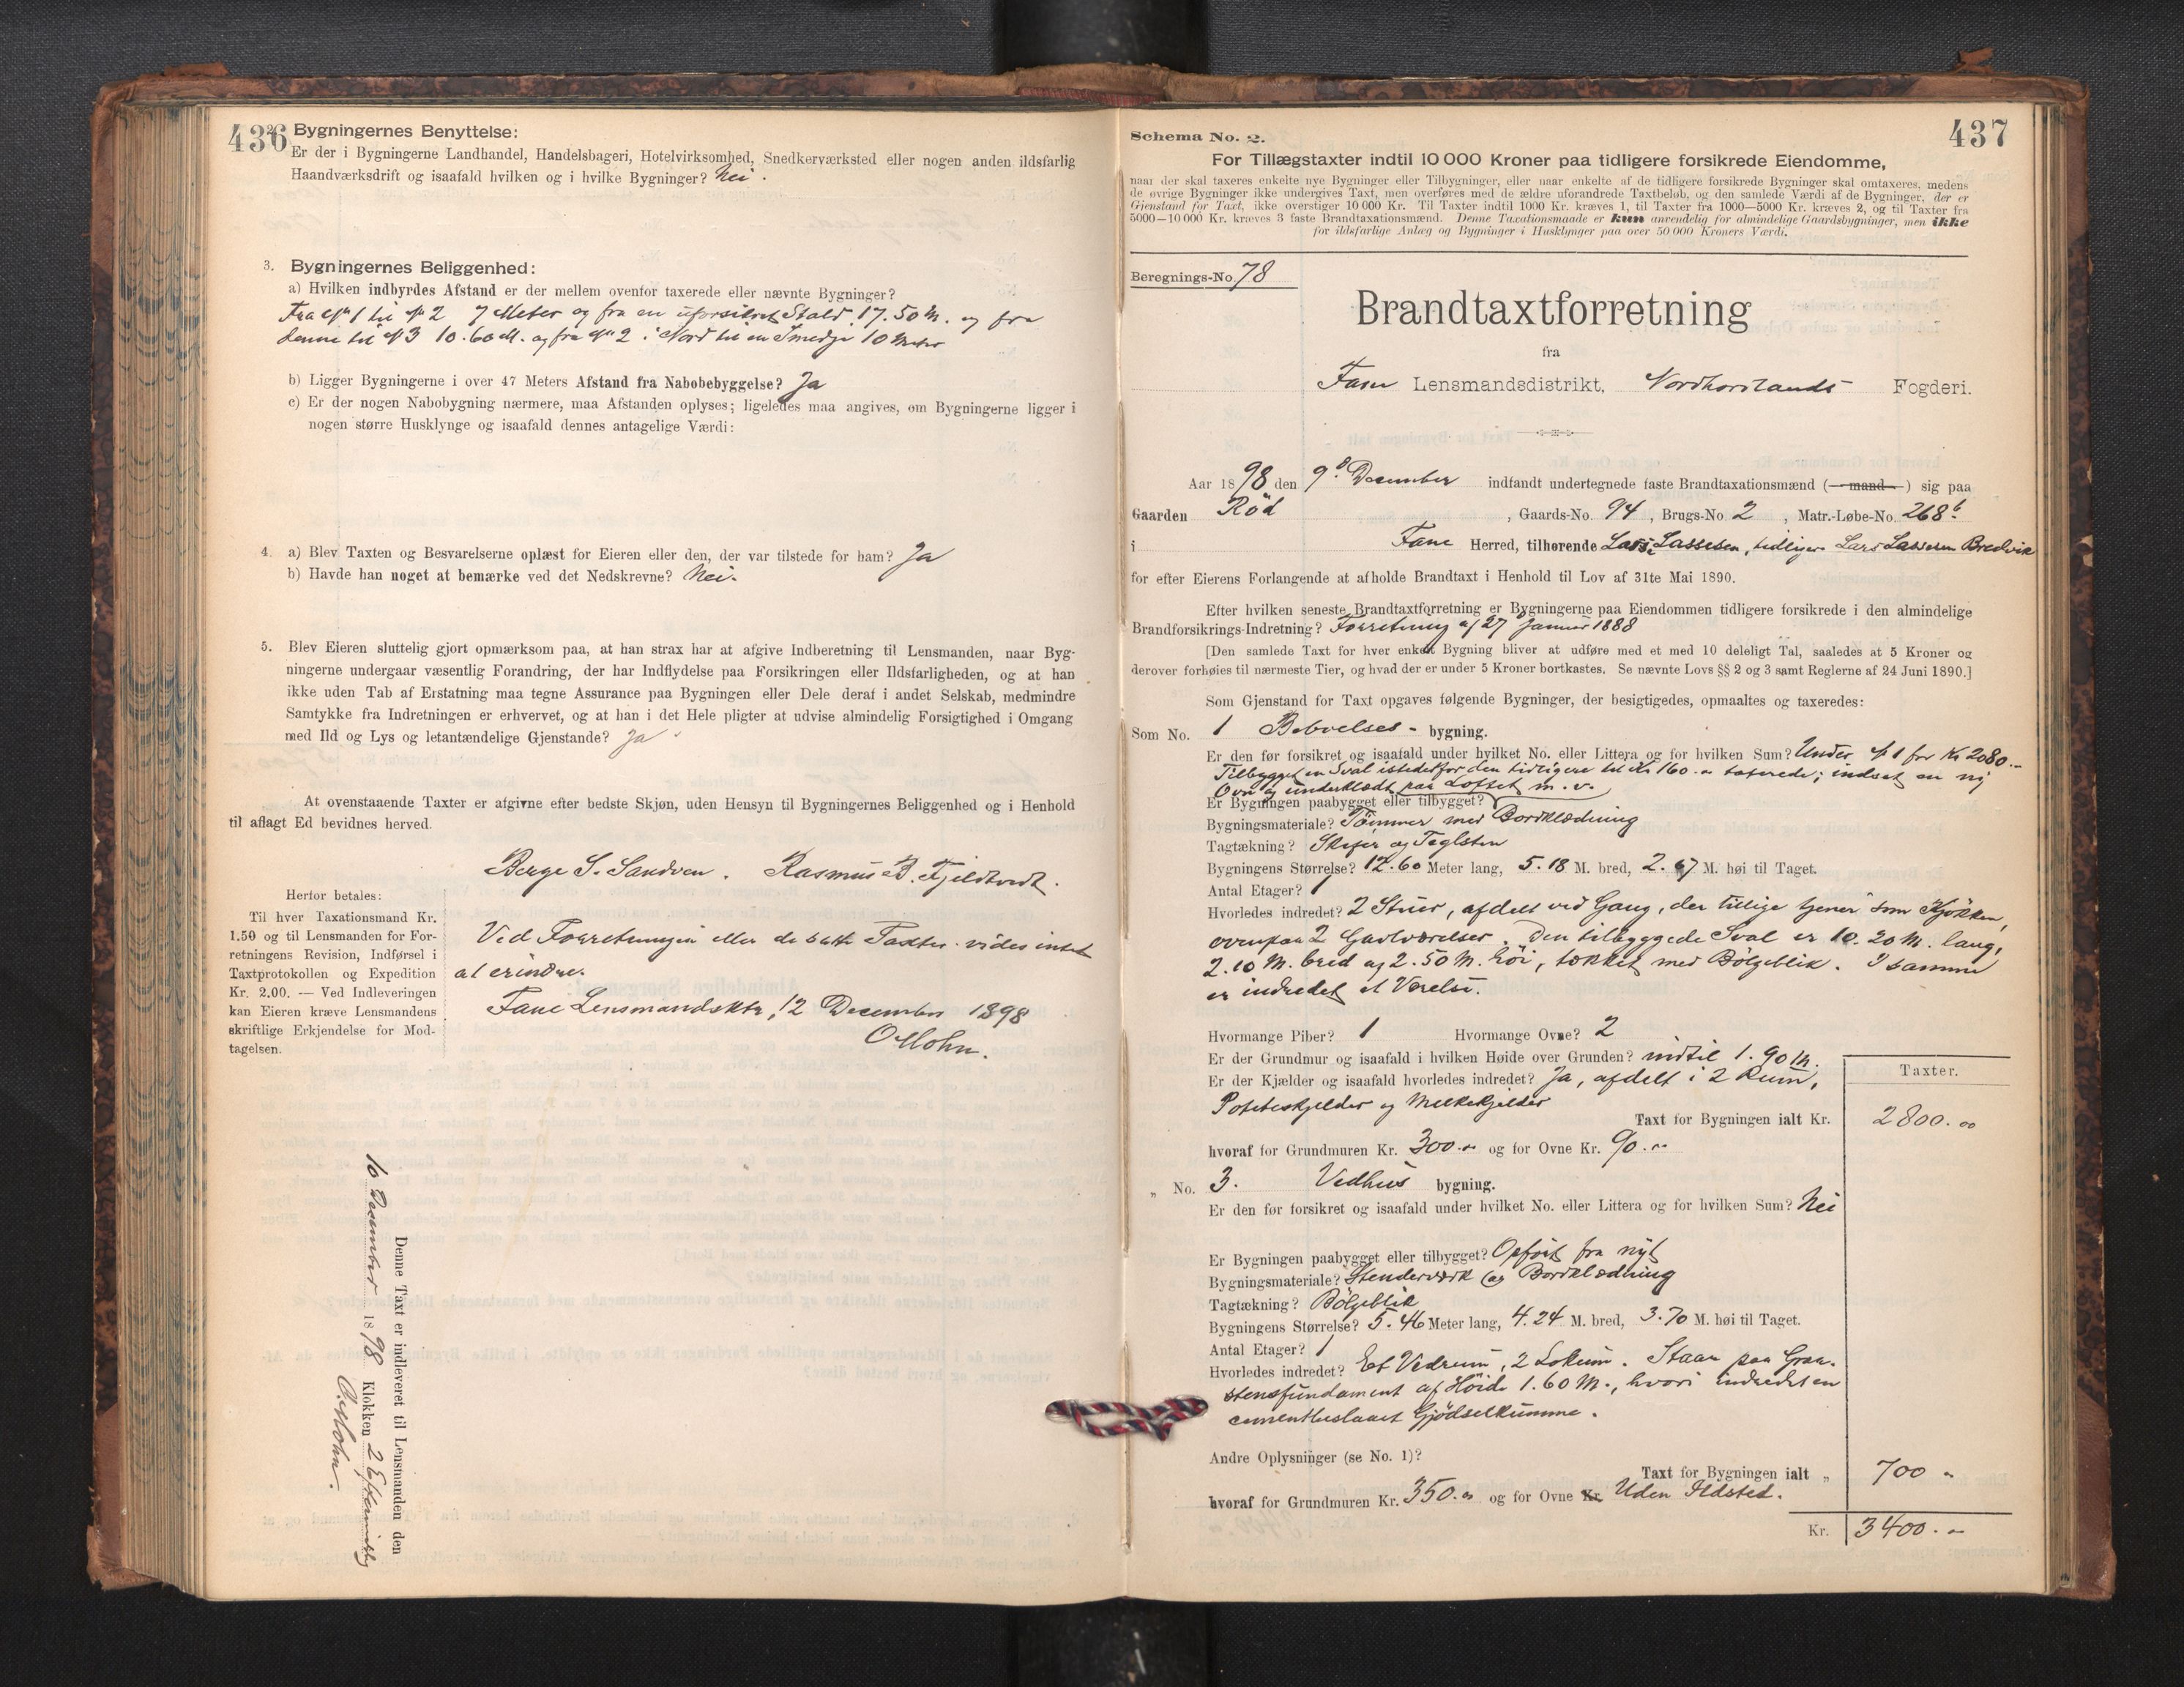 436
2. Bygningernes Benyttelse:
Er der i Bygningerne Landhandel, Handelsbageri, Hotelvirksomhed, Snedkerværksted eller nogen anden ildsfarlig
Haandværksdrift og isaafald hvilken og i hvilke Bygninger? Nei.
3. Bygningernes Beliggenhed:
a) Hvilken indbyrdes Afstand er der mellem ovenfor taxerede eller nævnte Bygninger?
Fra No 1 til No 2 7 Meter og fra en uforsikret Stald 17.50 M. og fra
denne til No 3 10.60 M. og fra No 2 i Nord til en Smedje 10 Meter
b) Ligger Bygningerne i over 47 Meters Afstand fra Nabobebyggelse? Ja
c) Er der nogen Nabobygning nærmere, maa Afstanden oplyses; ligeledes maa angives, om Bygningerne ligger i
nogen større Husklynge og isaafald dennes antagelige Værdi:
4. a) Blev Taxten og Besvarelserne oplæst for Eieren eller den, der var tilstede for ham? Ja
b) Havde han noget at bemærke ved det Nedskrevne? Nei.
5. Blev Eieren sluttelig gjort opmærksom paa, at han strax har at afgive Indberetning til Lensmanden, naar Byg-
ningerne undergaar væsentlig Forandring, der har Indflydelse paa Forsikringen eller Ildsfarligheden, og at han
ikke uden Tab af Erstatning maa tegne Assurance paa Bygningen eller Dele deraf i andet Selskab, medmindre
Samtykke fra Indretningen er erhvervet, og at han i det Hele pligter at udvise almindelig Forsigtighed i Omgang
med Ild og Lys og letantændelige Gjenstande? Ja
At ovenstaaende Taxter er afgivne efter bedste Skjøn, uden Hensyn til Bygningernes Beliggenhed og i Henhold
til aflagt Ed bevidnes herved.
Berge S. Sandven. Rasmus B. Fjeldtvedt.
Herfor betales:
Til hver Taxationsmand Kr.
1.50 og til Lensmanden for For-
retningens Revision, Indførsel i
Taxtprotokollen og Expedition
Kr. 2.00. — Ved Indleveringen
kan Eieren kræve Lensmandens
skriftlige Erkjendelse for Mod-
tagelsen.
Ved Forretningen eller de satte Taxter vides intet
at erindre.
Fane Lensmandsktr, 12 December 1898
O Mohn.
Denne Taxt er indleveret til Lensmanden den
10 December 1898 Klokken 2 Eftermiddag
O. Mohn.
437
Schema No. 2.
For Tillægstaxter indtil 10 000 Kroner paa tidligere forsikrede Eiendomme,
naar der skal taxeres enkelte nye Bygninger eller Tilbygninger, eller naar enkelte af de tidligere forsikrede Bygninger skal omtaxeres, medens
de øvrige Bygninger ikke undergives Taxt, men overføres med de ældre uforandrede Taxtbeløb, og den samlede Værdi af de Bygninger, der er
Gjenstand for Taxt, ikke overstiger 10 000 Kr. Til Taxter indtil 1000 Kr. kræves 1, til Taxter fra 1000—5000 Kr. kræves 2, og til Taxter fra
5000—10 000 Kr. kræves 3 faste Brandtaxationsmænd. Denne Taxationsmaade er kun anvendelig for almindelige Gaardsbygninger, men ikke
for ildsfarlige Anlæg og Bygninger i Husklynger paa over 50 000 Kroners Værdi.
Beregnings-No. 78
Brandtaxtforretning
fra
Fane Lensmandsdistrikt, Nordhordlands Fogderi.
Aar 1898 den 9de December indfandt undertegnede faste Brandtaxationsmænd (mand) sig paa
Gaarden Röd, Gaards-No. 94, Brugs-No 2, Matr.-Løbe-No. 268b
i Fane Herred, tilhørende Lars Lassesen, tidligere Lars Lassesen Bredvik
for efter Eierens Forlangende at afholde Brandtaxt i Henhold til Lov af 31te Mai 1890.
Efter hvilken seneste Brandtaxtforretning er Bygningerne paa Eiendommen tidligere forsikrede i den almindelige
Brandforsikrings-Indretning? Forretning af 27de Januar 1888
[Den samlede Taxt for hver enkelt Bygning bliver at udføre med et med 10 deleligt Tal, saaledes at 5 Kroner og
derover forhøies til nærmeste Tier, og hvad der er under 5 Kroner bortkastes. Se nævnte Lovs §§ 2 og 3 samt Reglerne af 24 Juni 1890.]
Som Gjenstand for Taxt opgaves følgende Bygninger, der besigtigedes, opmaaltes og taxeredes:
Som No. 1 Beboelses- bygning.
Er den før forsikret og isaafald under hvilket No. eller Littera og for hvilken Sum? Under No 1 for Kr 2080.-
Tilbygget en Sval istedetfor den tidligere til Kr 160.- taxerede; indsat en ny
Ovn og underklædt paa Loftet m. v.
Er Bygningen paabygget eller tilbygget?
Bygningsmateriale? Tömmer med Bordklædning
Tagtækning? Skifer og Teglsten
Bygningens Størrelse? 12.60 Meter lang, 5.18 M. bred, 2.67 M. høi til Taget.
Antal Etager? 1
Hvorledes indredet? 2 Stuer, afdelt ved Gang, der tillige tjener som Kjökken,
ovenpaa 2 Gavlværelser. Den tilbyggede Sval er 10.20 M. lang,
2.10 M. bred og 2.50 M. höi, tækket med Bölgeblik. I samme
er indredet et Værelse.
Hvormange Piber? 1 Hvormange Ovne? 2
Er der Grundmur og isaafald i hvilken Høide over Grunden? indtil 1.90 M.
Er der Kjælder og isaafald hvorledes indredet? Ja, afdelt i 2 Rum,
Poteteskjelder og Melkekjelder
Taxter.
Taxt for Bygningen ialt Kr. 2800.00
hvoraf for Grundmuren Kr. 300.- og for Ovne Kr. 90.-
„ No. 3. Vedhus bygning.
Er den før forsikret og isaafald under hvilket No. eller Littera og for hvilken Sum? Nei
Er Bygningen paabygget eller tilbygget? Opfört fra nyt
Bygningsmateriale? Stenderværk og Bordklædning
Tagtækning? Bölgeblik
Bygningens Størrelse? 5.46 Meter lang, 4.24 M. bred, 3.70 M. høi til Taget.
Antal Etager? 1
Hvorledes indredet? Et Vedrum, 2 Lokum. Staar paa Graa-
stensfundament af Höide 1.60 M., hvori indredet en
cementbeslaaet Gjödselkumme.
Andre Oplysninger (se No. 1)?
Taxt for Bygningen ialt „ 700 -
hvoraf for Grundmuren Kr. 350.- og for Ovne Kr. Uden Ildsted.
Kr. 3400.-